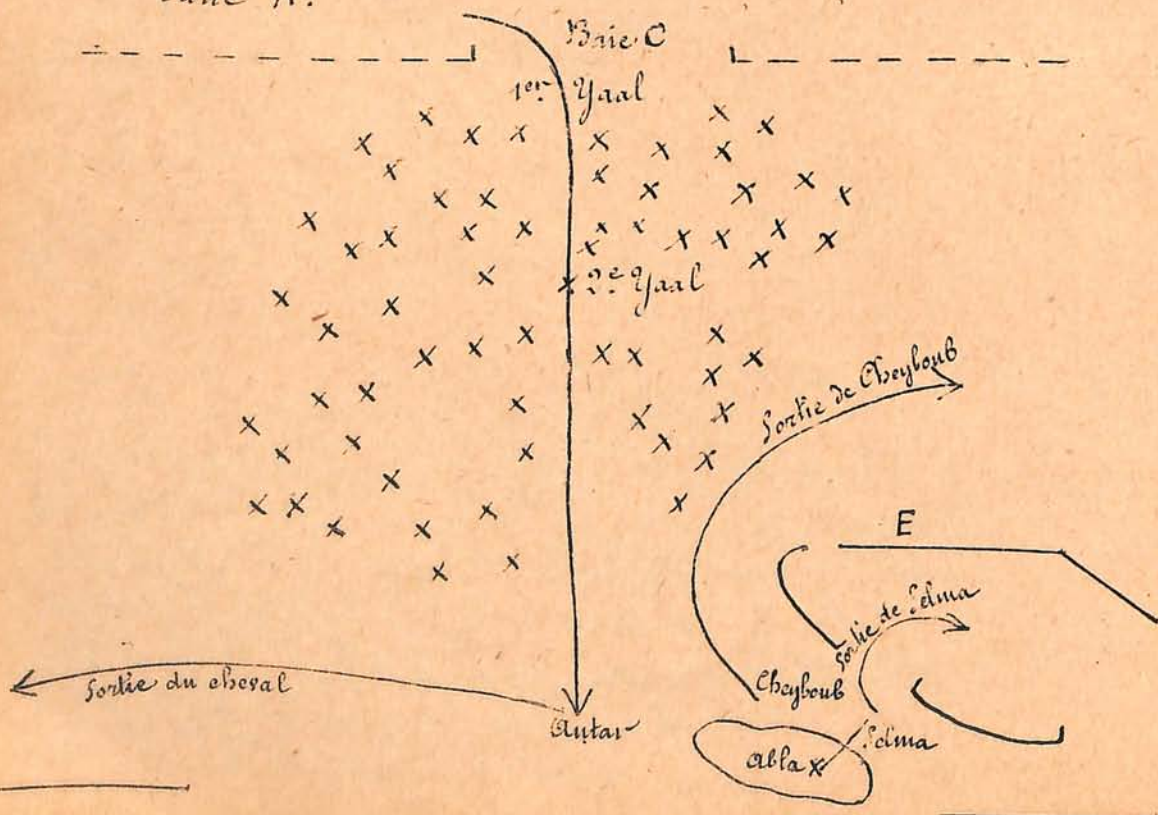 Baie C
1er Yaal
2e Yaal
Sortie de Cheyboub
E
Sortie de Selma
Sortie du cheval
Cheyboub
Antar
Selma
Abla